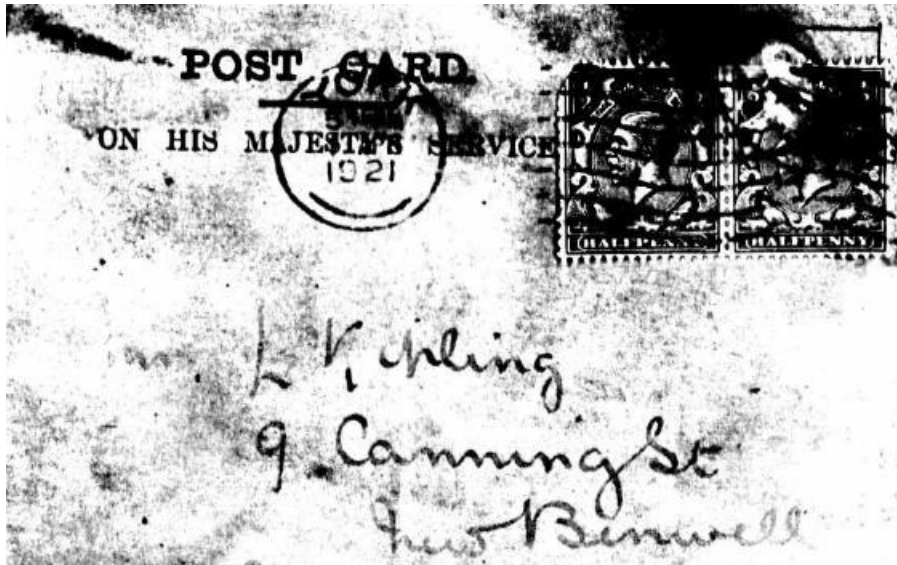 POST CARD.
ON HIS MAJESTY'S SERVICE
1921
HALFPENNY HALFPENNY
L Kipling
9 Canning St
New Benwell